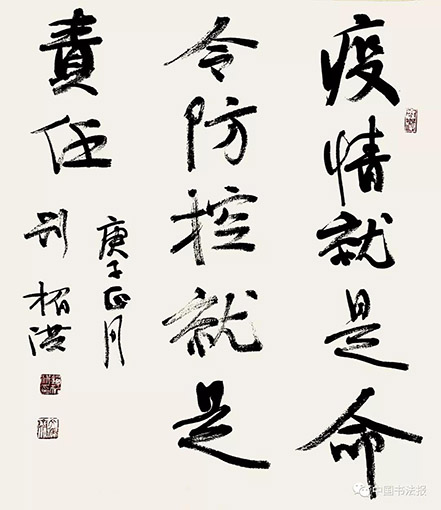 疫情就是命
令防控就是
責任
庚子正月
刘栢洪
中国书法报